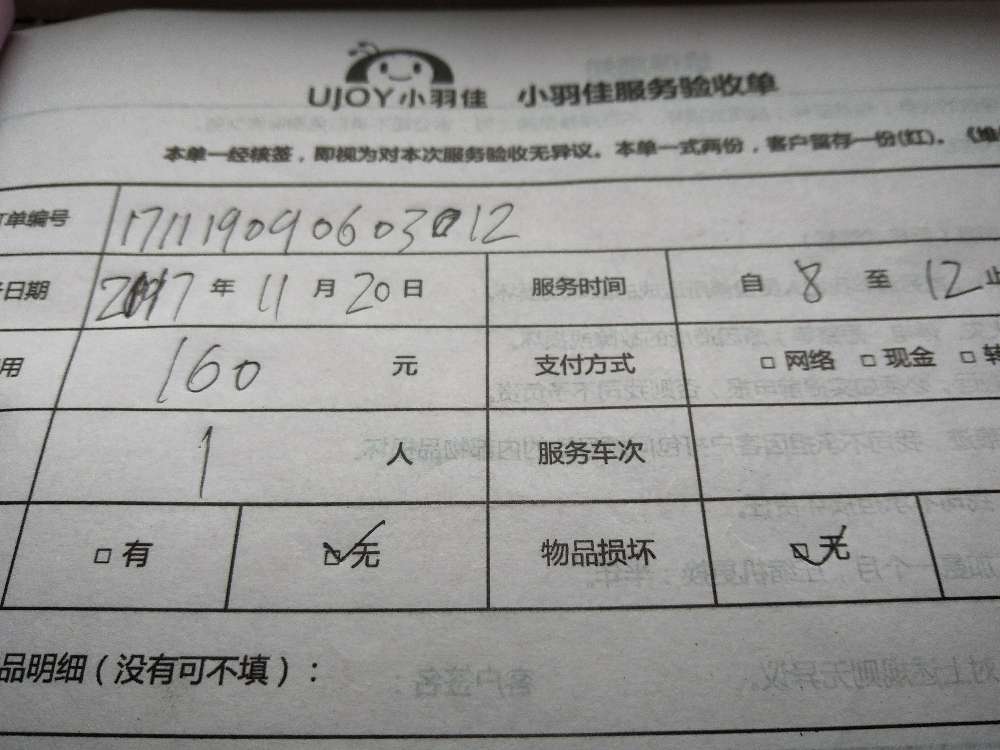 UJOY小羽佳 小羽佳服务验收单
本单一经核签，即视为对本次服务验收无异议。本单一式两份，客户留存一份(红)。《维
订单编号 17111909060312
日期 2017 年 11 月 20 日 服务时间 自 8 至 12 止
用 160 元 支付方式 □ 网络 □ 现金 □ 转
1 人 服务车次
□ 有 □ 无 物品损坏 □ 无
品明细（没有可不填）：